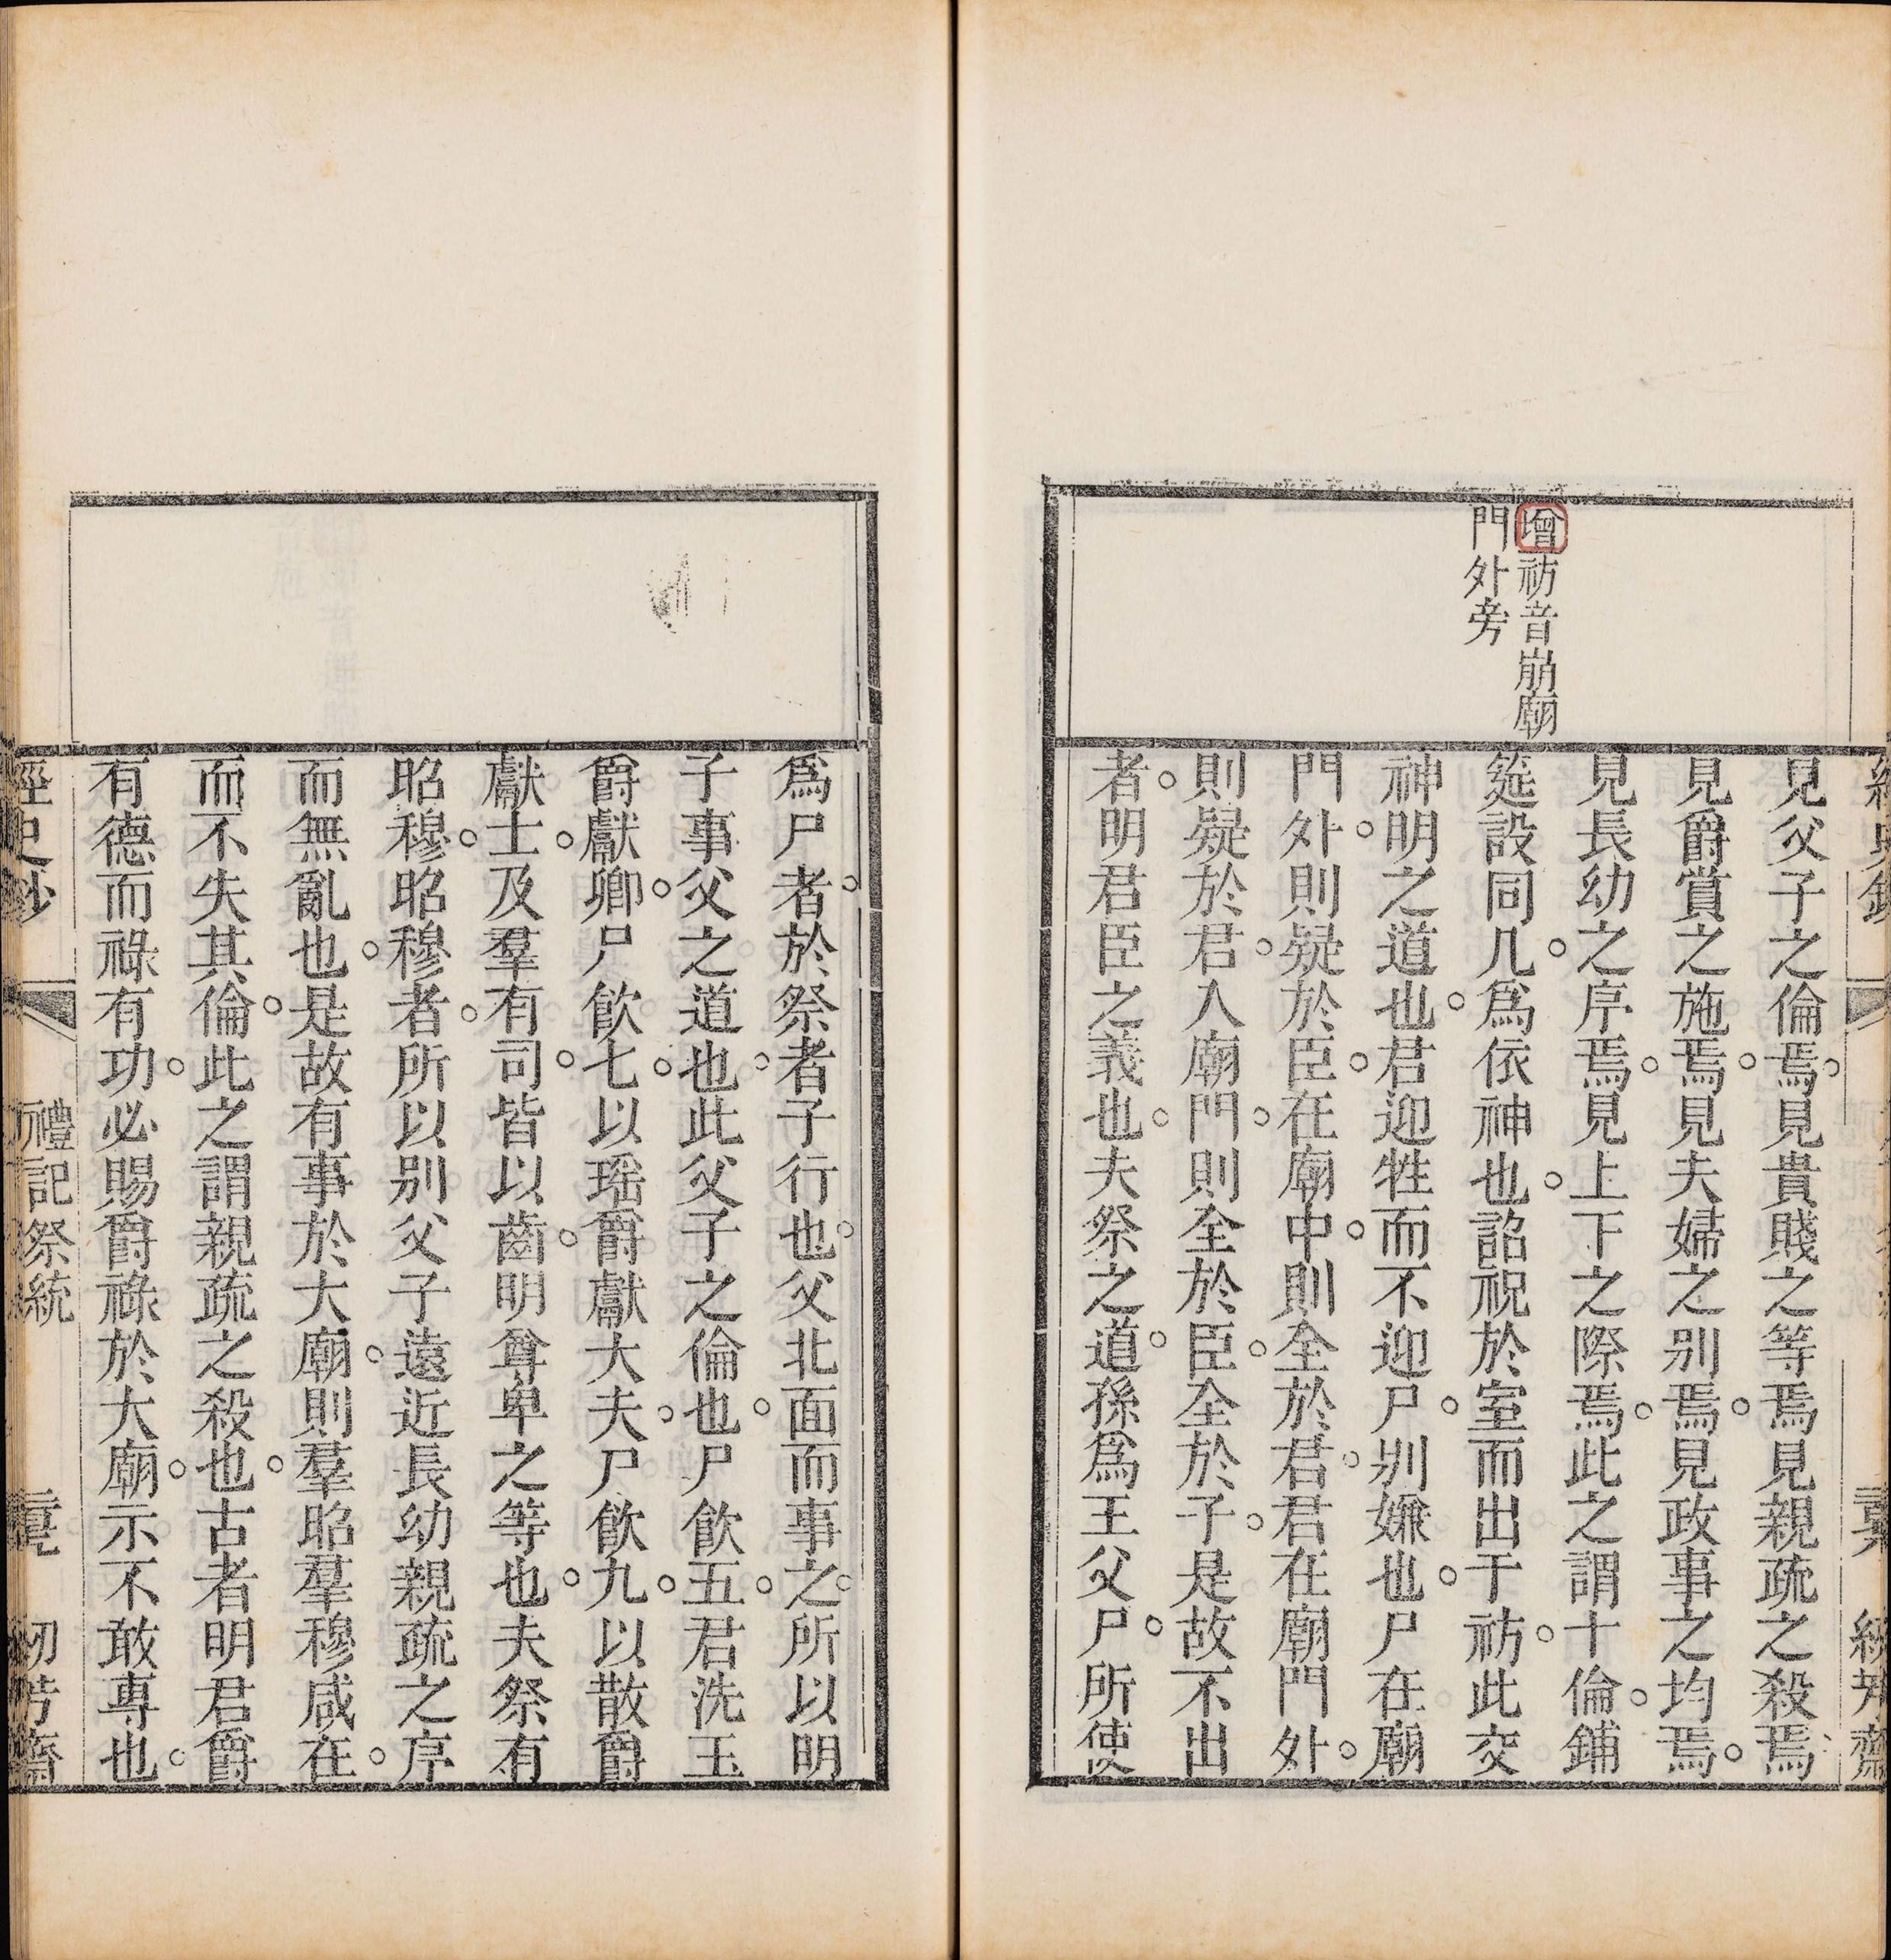 增祊音崩廟
門外旁
見父子之倫焉見貴賤之等焉見親疏之殺焉
見爵賞之施焉見夫婦之别焉見政事之均焉
見長幼之序焉見上下之際焉此之謂十倫鋪
筵設同几爲依神也詔祝於室而出于祊此交
神明之道也君迎牲而不迎尸别嫌也尸在廟
門外則疑於臣在廟中則全於君君在廟門外
則疑於君入廟門則全於臣全於子是故不出
者明君臣之義也夫祭之道孫爲王父尸所使
爲尸者於祭者子行也父北面而事之所以明
子事父之道也此父子之倫也尸飲五君洗玉
爵獻卿尸飲七以瑶爵獻大夫尸飲九以散爵
獻士及羣有司皆以齒明尊卑之等也夫祭有
昭穆昭穆者所以别父子遠近長幼親疏之序
而無亂也是故有事於大廟則羣昭羣穆咸在
而不失其倫此之謂親疏之殺也古者明君爵
有德而祿有功必賜爵祿於大廟示不敢專也
經史鈔
禮記祭統